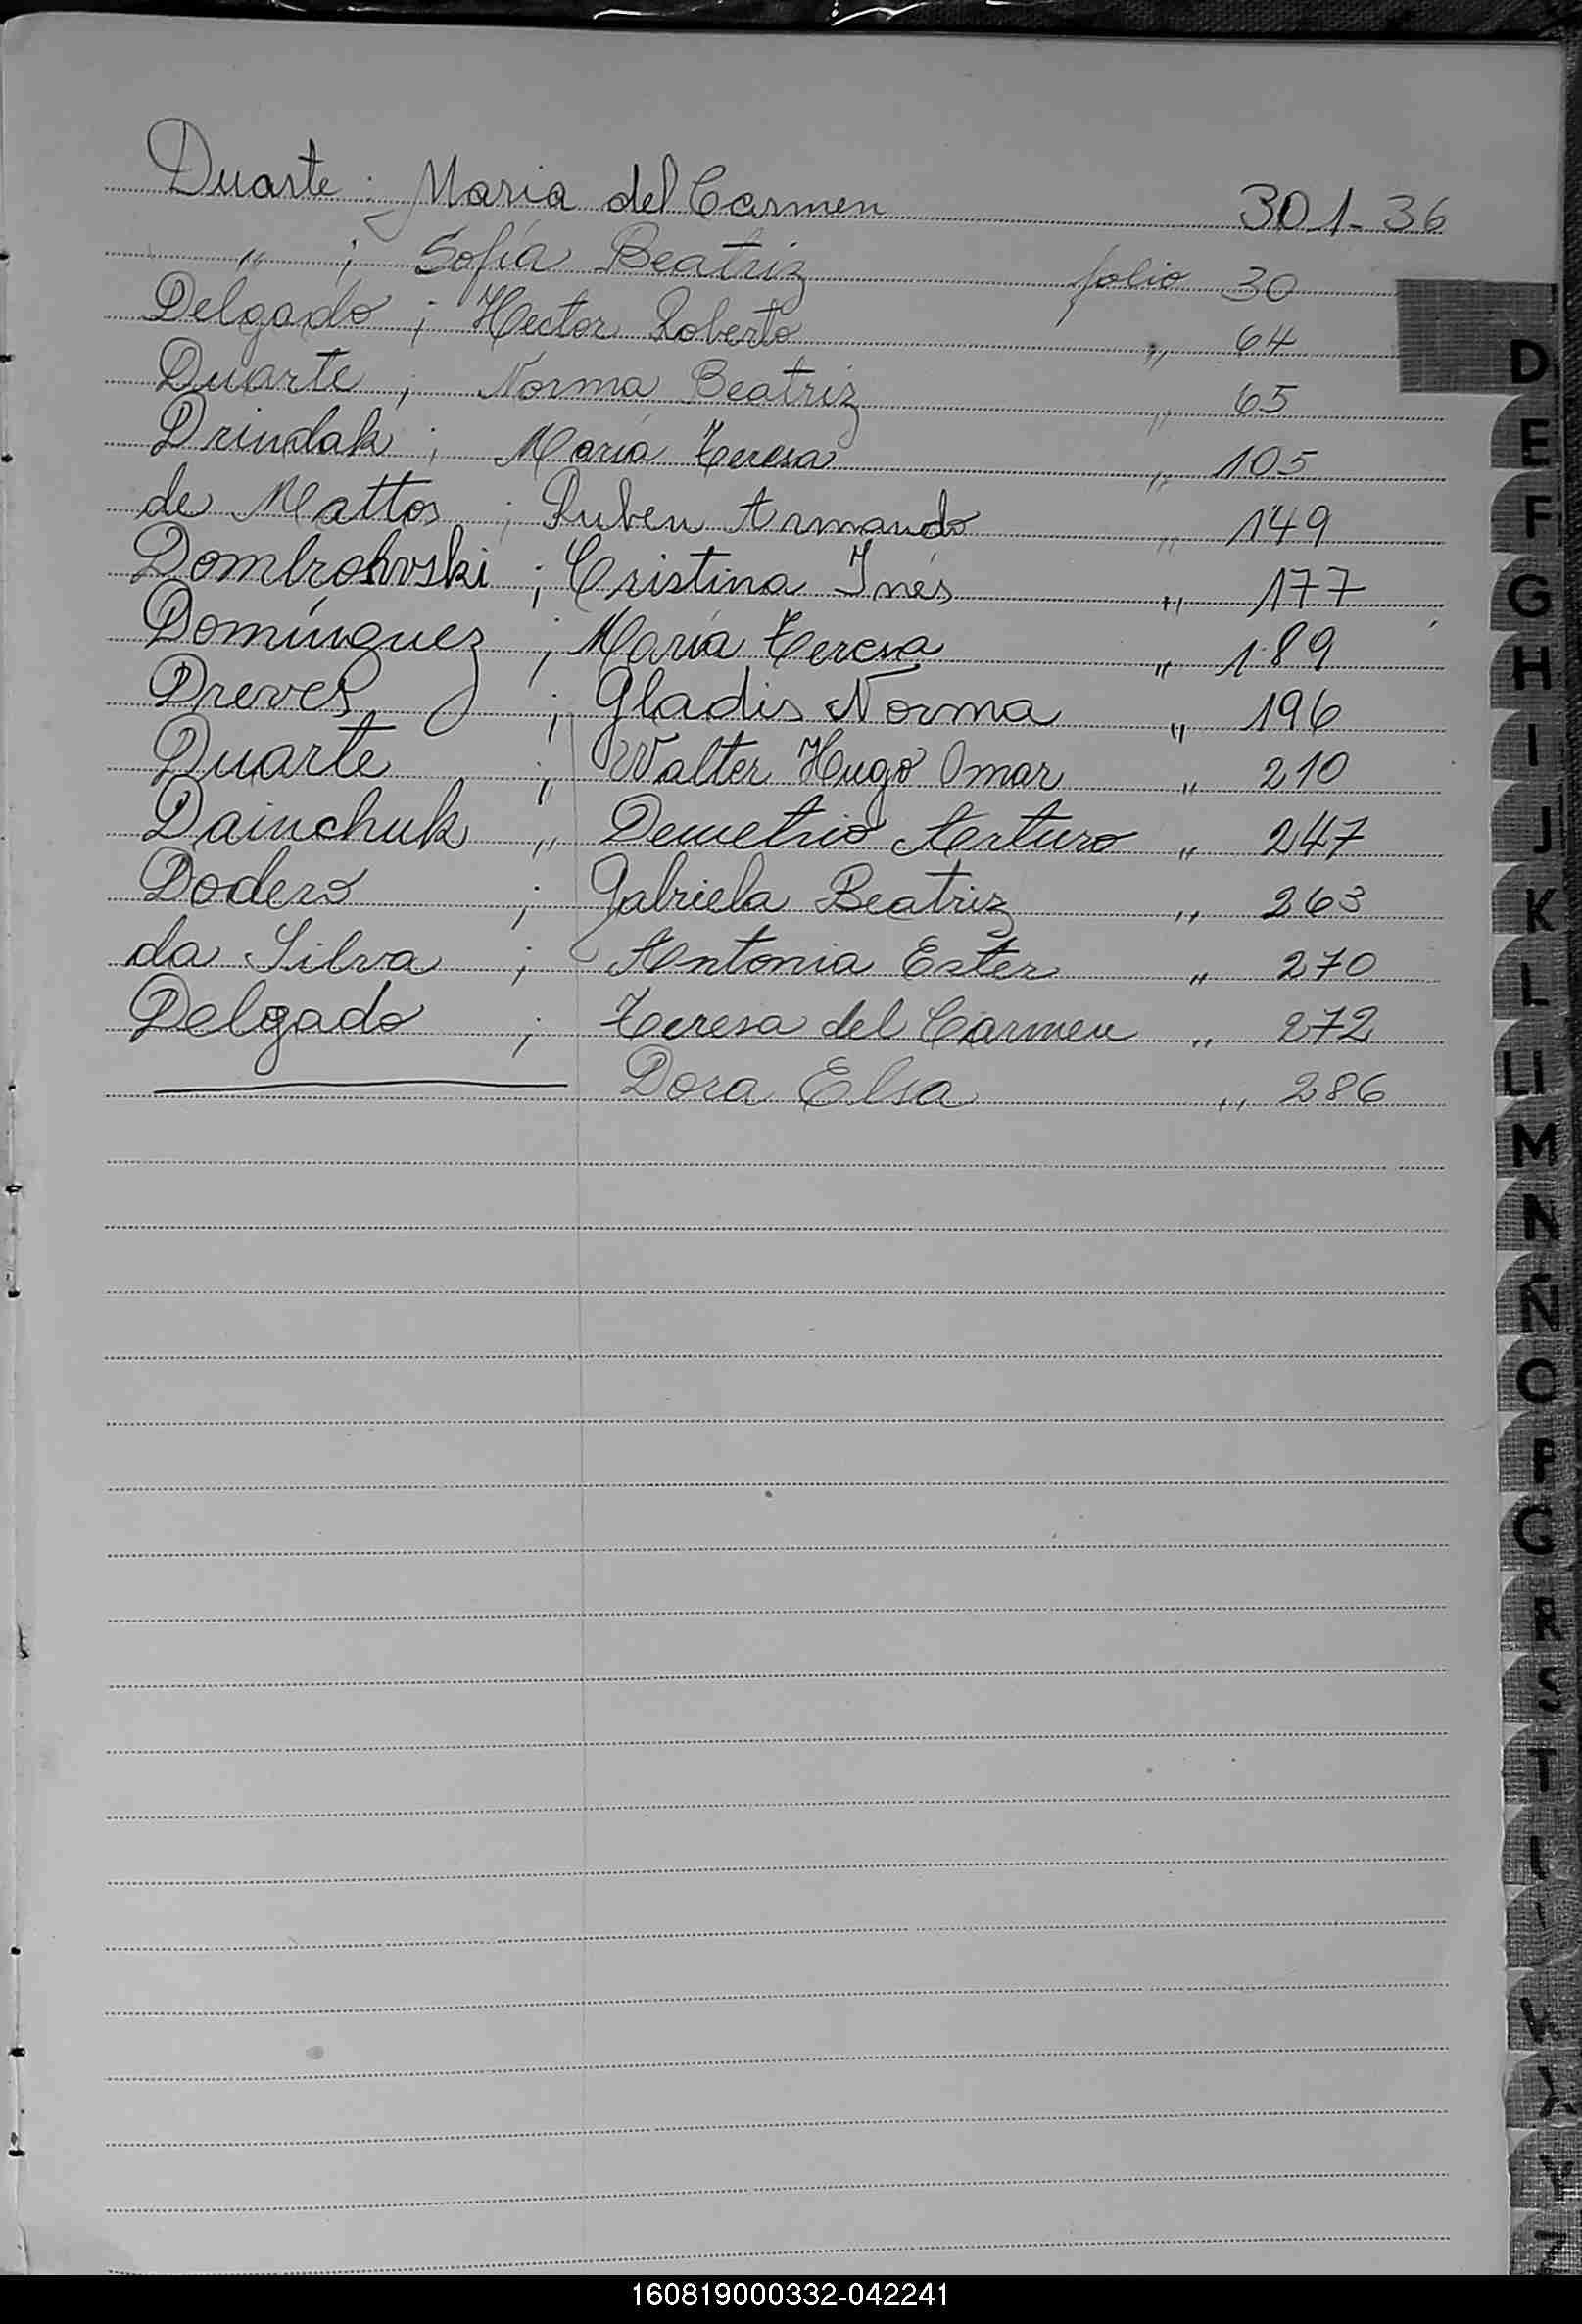 Duarte ; Maria del Carmen 301-36
" ; Sofía Beatriz folio 30
Delgado ; Hector Roberto " 64
Duarte ; Norma Beatriz " 65
Drindak ; María Teresa " 105
de Mattos ; Ruben Armando " 149
Dombrohvski ; Cristina Inés " 177
Domínguez ; María Teresa " 189
Dreves ; Gladis Norma " 196
Duarte ; Walter Hugo Omar " 210
Dainchuk " Demetrio Arturo " 247
Dodero ; Gabriela Beatriz " 263
da Silva ; Antonia Ester " 270
Delgado ; Teresa del Carmen " 272
Dora Elsa " 286
D
E
F
G
H
I
J
K
L
LL
M
N
Ñ
O
P
Q
R
S
T
160819000332-042241